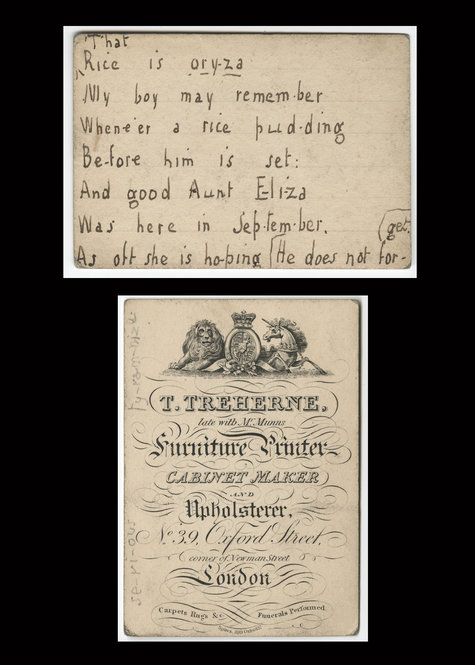 That
Rice is ory-za
My boy may remem-ber
When-e'er a rice pud-ding
Be-fore him is set:
And good Aunt E-li-za
Was here in Sep-tem-ber.
As oft she is ho-ping He does not for-
get.
T. TREHERNE,
late with Mr. Munns
Furniture Printer
CABINET MAKER
AND
Upholsterer,
No. 39, Oxford Street,
corner of Newman Street
London
Carpets Rugs &c. Funerals Performed